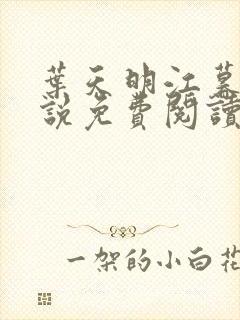 葉天明江慕
說免費閱讀
一架的小白花